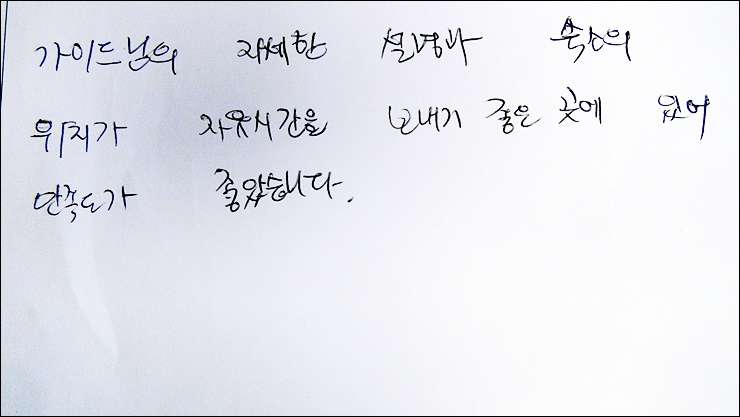 가이드님의 자세한 설명과 숙소의
위치가 자유시간을 보내기 좋은 곳에 있어
만족도가 좋았습니다.